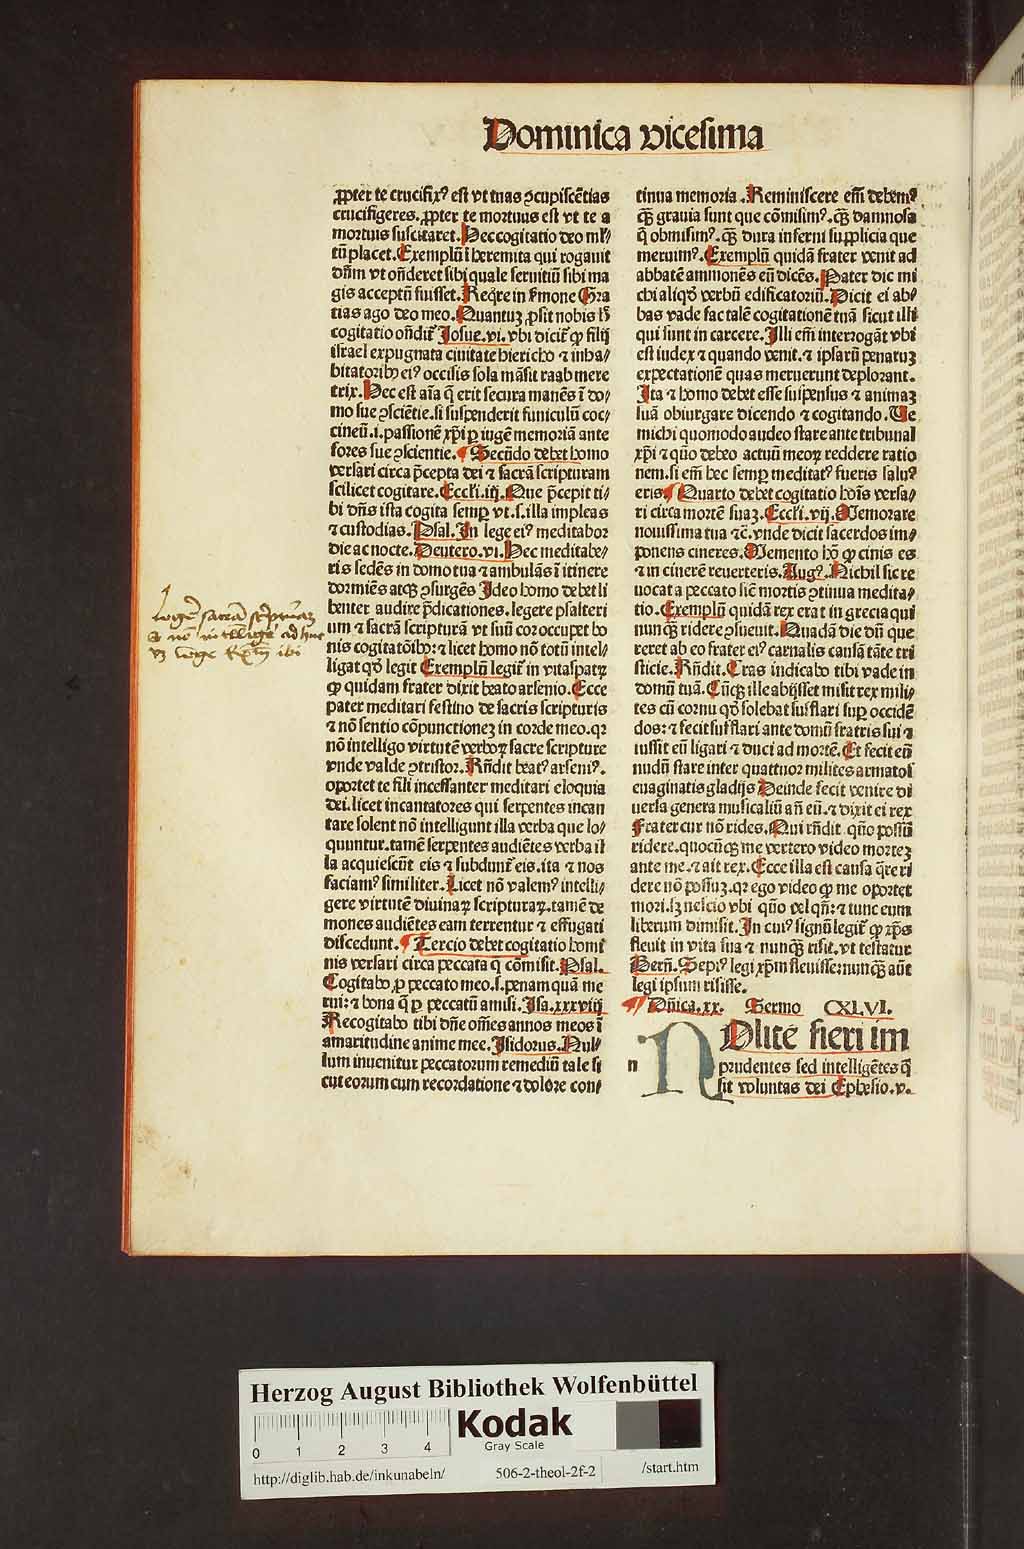 Dominica vicesima
ꝓpter te crucifixꝰ est vt tuas ꝯcupiscẽtias
crucifigeres. ꝓpter te mortuus est vt te a
mortuis suscitaret. Hec cogitatio deo ml'
tũ placet. Exemplũ ĩ heremita qui rogauit
dñm vt oñderet sibi quale seruitiũ sibi ma
gis acceptũ fuisset. Reqͥre in ẜmone Gra
tias ago deo meo. Quantuꝫ ꝓsit nobis hͨ
cogitatio oñdit᷑ Josue. vi. vbi dicit᷑ ꝙ filij
israel expugnata ciuitate hiericho ⁊ inha/
bitatoribꝰ eiꝰ occisis sola mãsit raab mere
trix. Hec est aĩa q̃ erit secura manẽs ĩ do/
mo sue ꝯsciẽtie. si suspenderit funiculũ coc/
cineũ. i. passionẽ xp̃i ꝑ iugẽ memoriã ante
fores sue ꝯscientie. ¶ Secũdo debet homo
versari circa p̃cepta dei ⁊ sacrã scripturam
scilicet cogitare. Eccli. iij. Que p̃cepit ti/
bi dñs ista cogita semꝑ vt. s. illa impleas
⁊ custodias. Psal. In lege eiꝰ meditabor
die ac nocte. Deutero. vi. Hec meditabe/
ris sedẽs in domo tua ⁊ ambulãs ĩ itinere
dormiẽs atqꝫ ꝯsurgẽs Ideo homo debet li
benter audire p̃dicationes. legere psalteri
um ⁊ sacrã scripturã vt suũ cor occupet bo
nis cogitatõibꝰ: ⁊ licet homo nõ totũ intel/
ligat qd' legit Exemplũ legit᷑ in vitaspatꝝ
ꝙ quidam frater dixit beato arsenio. Ecce
pater meditari festino de sacris scripturis
⁊ nõ sentio cõpunctioneꝫ in corde meo. qꝛ
nõ intelligo virtutẽ verboꝝ sacre scripture
vnde valde ꝯtristor. Rñdit beatꝰ arseniꝰ.
oportet te fili incessanter meditari eloquia
dei. licet incantatores qui serpentes incan
tare solent nõ intelligunt illa verba que lo/
quuntur. tamẽ serpentes audiẽtes verba il
la acquiescũt eis ⁊ subdunt᷑ eis. ita ⁊ nos
faciamꝰ similiter. Licet nõ valemꝰ intelli/
gere virtutẽ diuinaꝝ scripturaꝝ. tamẽ de
mones audiẽtes eam terrentur ⁊ effugati
discedunt. ¶ Tercio debet cogitatio homi
nis versari circa peccata q̃ cõmisit. Psal.
Cogitabo ꝓ peccato meo. s. penam quã me
rui: ⁊ bona q̃ ꝑ peccatũ amisi. Isa. xxxviij
Recogitabo tibi dñe oẽs annos meos ĩ
amaritudine anime mee. Isidorus. Nul/
lum inuenitur peccatorum remediũ tale si
cut eorum cum recordatione ⁊ dolore con/
Legẽs sacrã sc̃pturaꝫ
⁊ nõ intellige adhuc
vꝫ lege ibi
tinua memoria. Reminiscere em̃ debemꝰ
qꝫ grauia sunt que cõmisimꝰ. qꝫ damnosa
q̃ obmisimꝰ. qꝫ dura inferni supplicia que
meruimꝰ. Exemplũ quidã frater venit ad
abbatẽ ammonẽs eũ dicẽs. Pater dic mi
chi aliqd' verbũ edificatoriũ. Dicit ei ab/
bas vade fac talẽ cogitationẽ tuã sicut illi
qui sunt in carcere. Illi em̃ interrogãt vbi
est iudex ⁊ quando venit. ⁊ ipsarũ penaruꝫ
expectationẽ quas meruerunt deplorant.
Ita ⁊ homo debet esse suspensus ⁊ animaꝫ
suã obiurgare dicendo ⁊ cogitando. Ve
michi quomodo audeo stare ante tribunal
xp̃i ⁊ quõ debeo actuũ meoꝝ reddere ratio
nem. si em̃ hec semꝑ meditatꝰ fueris saluꝰ
eris ¶ Quarto debet cogitatio hoĩs versa/
ri circa mortẽ suaꝫ. Eccli. vij. Memorare
nouissima tua ⁊c̃. vnde dicit sacerdos im/
ponens cineres. Memento hõ ꝙ cinis es
⁊ in cinerẽ reuerteris. Augꝰ. Nichil sic re
uocat a peccato sicꝰ mortis ꝯtinua medita/
tio. Exemplũ quidã rex erat in grecia qui
nunqꝫ ridere ꝯsueuit. Quadã die dũ que
reret ab eo frater eiꝰ carnalis causã tãte tri
sticie. Rñdit. Cras indicabo tibi vade in
domũ tuã. Cũqꝫ ille abijsset misit rex mili/
tes cũ cornu qd' solebat sufflari suꝑ occidẽ
dos: ⁊ fecit sufflari ante domũ fratris sui ⁊
iussit eũ ligari ⁊ duci ad mortẽ. Et fecit eũ
nudũ stare inter quattuor milites armatos
euaginatis gladijs Deinde fecit venire di
uersa genera musicaliũ añ eũ. ⁊ dixit ei rex
Frater cur nõ rides. Qui rñdit quõ possũ
ridere. quocũqꝫ me vertero video morteꝫ
ante me. ⁊ ait rex. Ecce illa est causa q̃re ri
dere nõ possuꝫ. qꝛ ego video ꝙ me oportet
mori. sꝫ nescio vbi quõ vel qñ: ⁊ tunc eum
liberum dimisit. In cuiꝰ signũ legit᷑ ꝙ xp̃s
fleuit in vita sua ⁊ nunqꝫ risit. vt testatur
Bern̄. Sepiꝰ legi xp̃m fleuisse: nunqꝫ aũt
legi ipsum risisse.
¶ Dñica. xx. Sermo CXLVI.
n Nolite fieri im
prudentes sed intelligẽtes q̃
sit voluntas dei Ephesio. v.
Herzog August Bibliothek Wolfenbüttel
0 1 2 3 4
Kodak
Gray Scale
http://diglib.hab.de/inkunabeln/ 506-2-theol-2f-2 /start.htm